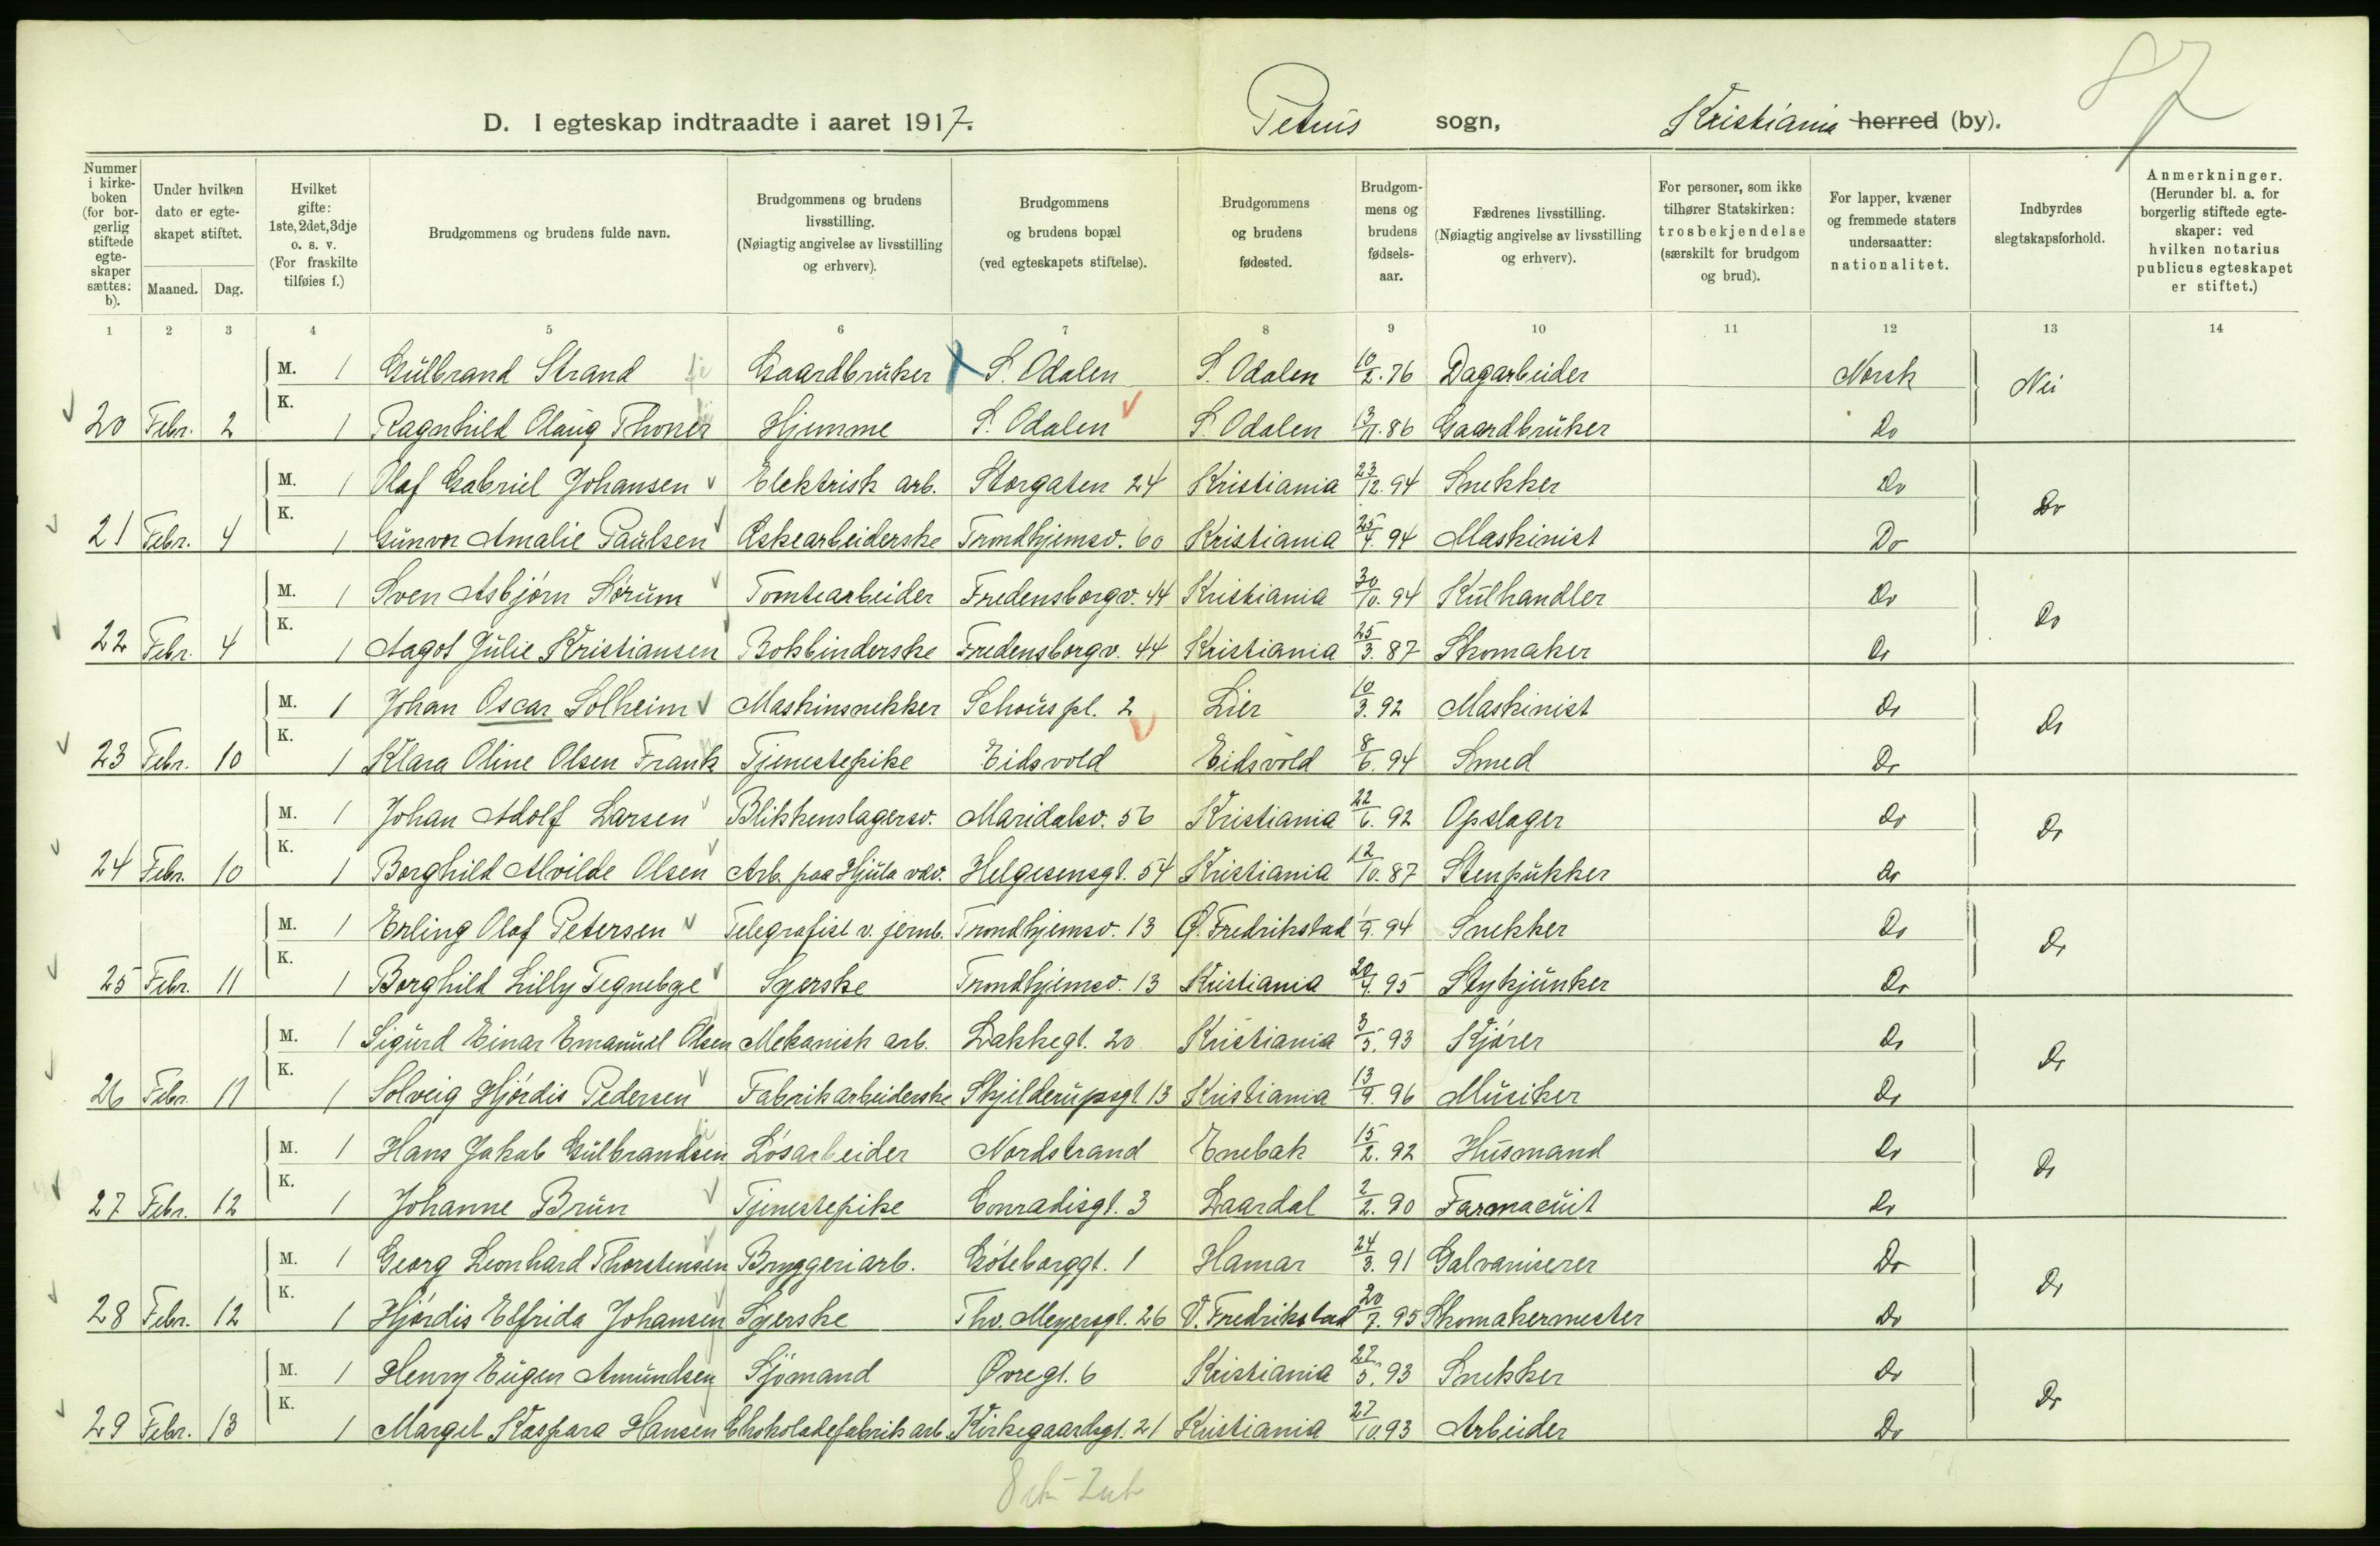 87
D. I egteskap indtraadte i aaret 1917. Petrus sogn, Kristiania herred (by).
Nummer i kirkeboken (for borgerlig stiftede egteskaper sættes: b).
Under hvilken dato er egteskapet stiftet.
Maaned. Dag.
Hvilket gifte: 1ste, 2det, 3dje o. s. v. (For fraskilte tilføies f.)
Brudgommens og brudens fulde navn.
Brudgommens og brudens livsstilling. (Nøiagtig angivelse av livsstilling og erhverv).
Brudgommens og brudens bopæl (ved egteskapets stiftelse).
Brudgommens og brudens fødested.
Brudgommens og brudens fødselsaar.
Fædrenes livsstilling. (Nøiagtig angivelse av livsstilling og erhverv).
For personer, som ikke tilhører Statskirken: trosbekjendelse (særskilt for brudgom og brud).
For lapper, kvæner og fremmede staters undersaatter: nationalitet.
Indbyrdes slegtskapsforhold.
Anmerkninger. (Herunder bl. a. for borgerlig stiftede egteskaper: ved hvilken notarius publicus egteskapet er stiftet.)
1 2 3 4 5 6 7 8 9 10 11 12 13 14
M. 1 Gulbrand Strand Gaardbruker S. Odalen S. Odalen 10/2.76 Dagarbeider Norsk Nei
20 Febr. 2 K. 1 Ragnhild Olaug Thoner Hjemme S. Odalen S. Odalen 13/11.86 Gaardbruker Do
M. 1 Olaf Gabriel Johansen Elektrisk arb. Storgaten 24 Kristiania 23/12.94 Snekker Do Do
21 Febr. 4 K. 1 Gunvor Amalie Paulsen Æskearbeiderske Trondhjemsv. 60 Kristiania 25/4.94 Maskinist Do
M. 1 Sven Asbjørn Sørum Tomtearbeider Fredensborgv. 44 Kristiania 30/10.94 Kulhandler Do Do
22 Febr. 4 K. 1 Aagot Julie Kristiansen Bokbinderske Fredensborgv. 44 Kristiania 25/3.87 Skomaker Do
M. 1 Johan Oscar Solheim Maskinsnekker Schous pl. 2 Lier 10/3.92 Maskinist Do Do
23 Febr. 10 K. 1 Klara Oline Olsen Frank Tjenestepike Eidsvold Eidsvold 8/6.94 Smed Do
M. 1 Johan Adolf Larsen Blikkenslagersv. Maridalsv. 56 Kristiania 22/6.92 Opslager Do Do
24 Febr. 10 K. 1 Borghild Alvilde Olsen Arb. paa Hjula væv. Helgesensgt. 54 Kristiania 12/10.87 Stenpukker Do
M. 1 Erling Olaf Petersen Telegrafist v. jernb. Trondhjemsv. 13 Ø. Fredrikstad 1/9.94 Snekker Do Do
25 Febr. 11 K. 1 Borghild Lilly Tegnebye Syerske Trondhjemsv. 13 Kristiania 20/4.95 Stykjunker Do
M. 1 Sigurd Einar Emanuel Olsen Mekanisk arb. Lakkegt. 20 Kristiania 3/5.93 Kjører Do Do
26 Febr. 11 K. 1 Solveig Hjørdis Pedersen Fabrikarbeiderske Skjelderupsgt 13 Kristiania 13/9.96 Musiker Do
M. 1 Hans Jakob Gulbrandsen Løsarbeider Nordstrand Enebak 15/2.92 Husmand Do Do
27 Febr. 12 K. 1 Johanne Brun Tjenestepike Conradisgt. 3 Laardal 2/2.90 Farmaceuit Do
M. 1 Georg Leonhard Thorstensen Bryggeriarb. Gøteborggt. 1 Hamar 24/3.91 Galvaniserer Do Do
28 Febr. 12 K. 1 Hjørdis Elfrida Johansen Syerske Thv. Meyersgt. 26 V. Fredrikstad 20/7.95 Skomakermester Do
M. 1 Henry Eugen Amundsen Sjømand Øvregt. 6 Kristiania 27/5.93 Snekker Do Do
29 Febr. 13 K. 1 Marget Kaspara Hansen Chokoladefabrik arb. Kirkegaardsgt. 21 Kristiania 27/10.93 Arbeider Do